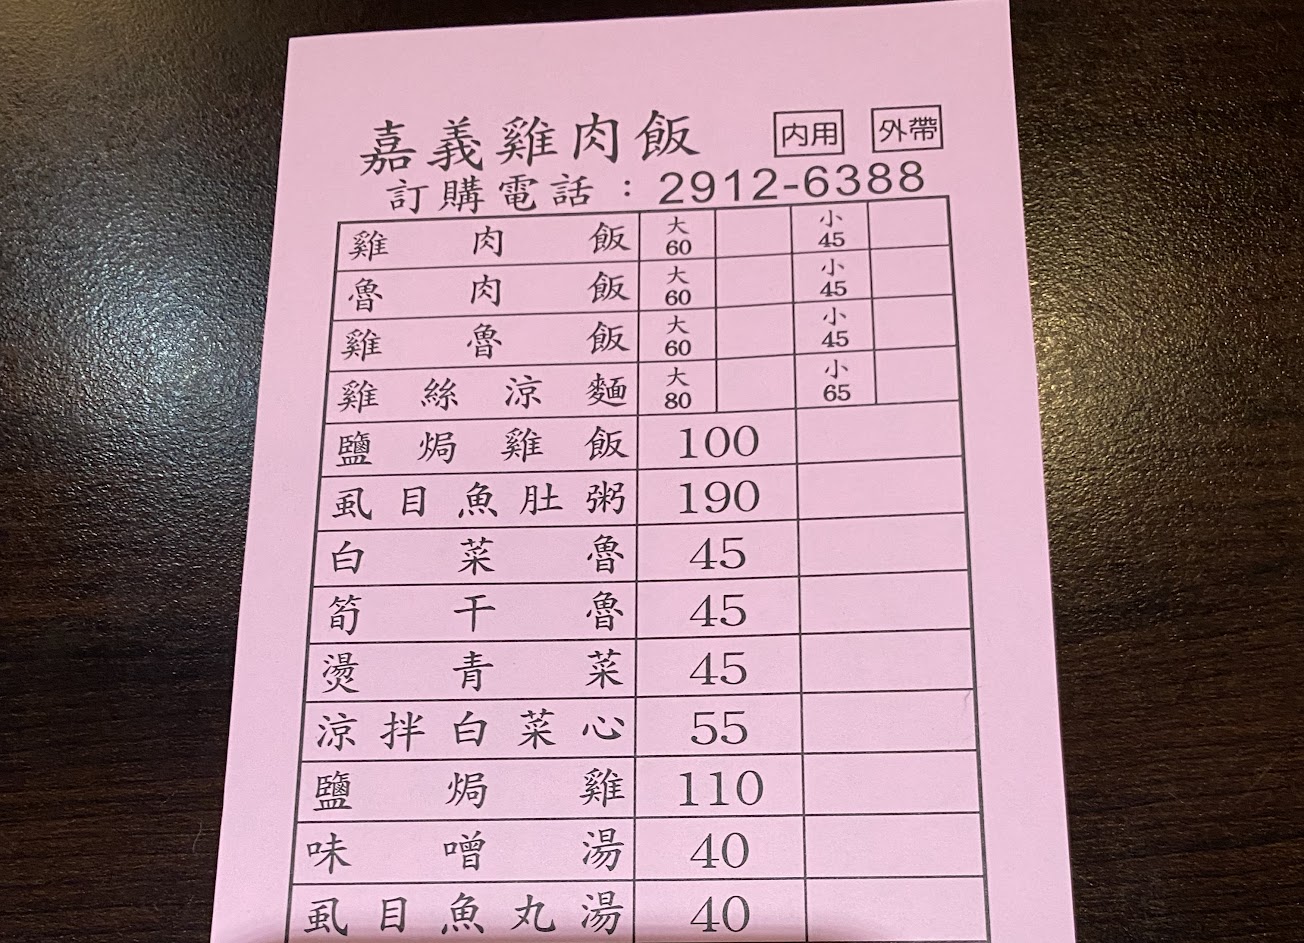 嘉義雞肉飯 內用 外帶
訂購電話：2912-6388
雞肉飯 大60 小45
魯肉飯 大60 小45
雞魯飯 大60 小45
雞絲涼麵 大80 小65
鹽焗雞飯 100
虱目魚肚粥 190
白菜魯 45
筍干魯 45
燙青菜 45
涼拌白菜心 55
鹽焗雞 110
味噌湯 40
虱目魚丸湯 40